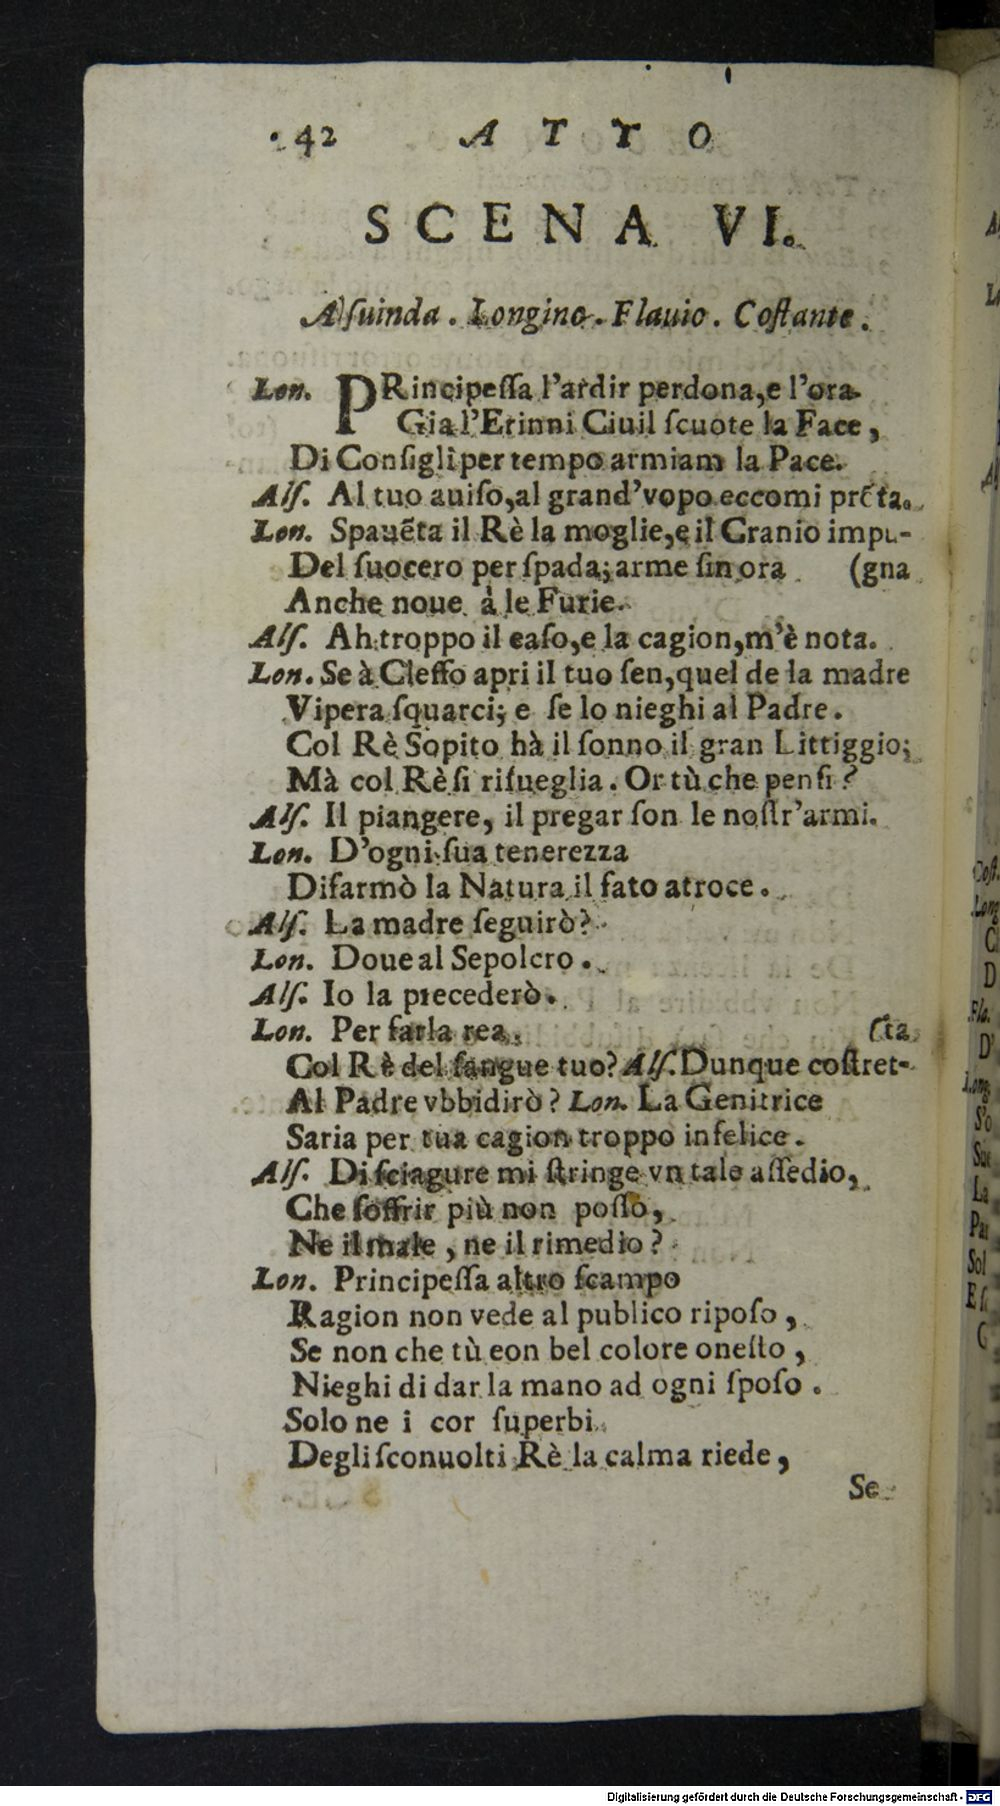 42 ATTO
SCENA VI.
Alſuinda. Longino. Flauio. Coſtante.
Lon. PRincipeſſa l'ardir perdona, e l'ora
Gia l'Erinni Ciuil ſcuote la Face,
Di Conſigli per tempo armiam la Pace.
Alſ. Al tuo auiſo, al grand'vopo eccomi prẽta.
Lon. Spauẽta il Rè la moglie, e il Cranio impu-
Del ſuocero per ſpada; arme ſin ora (gna
Anche noue à le Furie.
Alſ. Ah troppo il caſo, e la cagion, m'è nota.
Lon. Se à Cleffo apri il tuo ſen, quel de la madre
Vipera ſquarci; e ſe lo nieghi al Padre.
Col Rè Sopito hà il ſonno il gran Littiggio;
Mà col Rè ſi riſueglia. Or tù che penſi?
Alſ. Il piangere, il pregar ſon le noſtr'armi.
Lon. D'ogni ſua tenerezza
Diſarmò la Natura il fato atroce.
Alſ. La madre ſeguirò?
Lon. Doue al Sepolcro.
Alſ. Io la precederò.
Lon. Per farla rea, (ta
Col Rè del ſangue tuo? Alſ. Dunque coſtret-
Al Padre vbbidirò? Lon. La Genitrice
Saria per tua cagion troppo infelice.
Alſ. Di ſciagure mi ſtringe vn tale aſſedio,
Che ſoffrir più non poſſo,
Ne il male, ne il rimedio?
Lon. Principeſſa altro ſcampo
Ragion non vede al publico ripoſo,
Se non che tù eon bel colore oneſto,
Nieghi di dar la mano ad ogni ſpoſo.
Solo ne i cor ſuperbi
Degli ſconuolti Rè la calma riede,
Se
Coſt.
Long
C
D
Fla.
D'
Long.
S'o
Sue
La
Par
Sol
E ſ
C
Digitalisierung gefördert durch die Deutsche Forschungsgemeinschaft - DFG